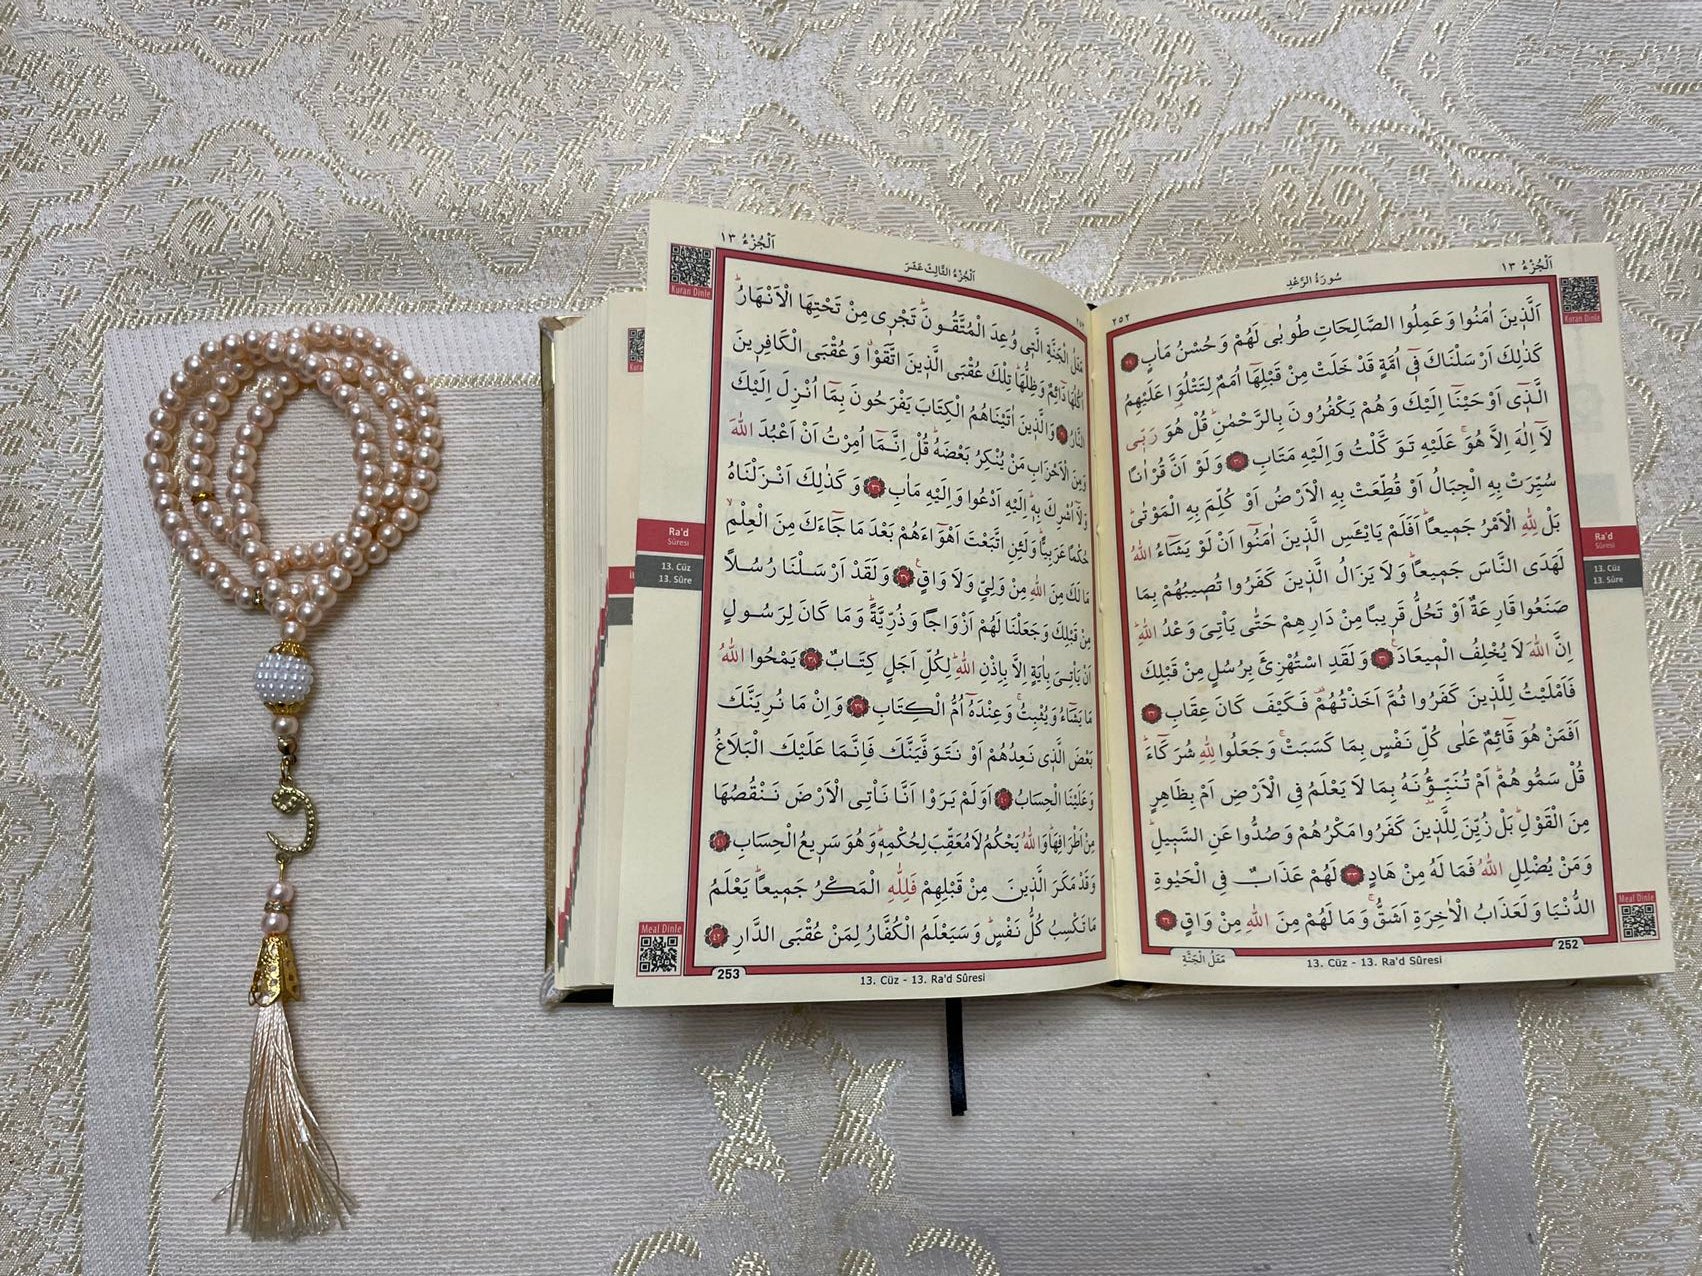 اَلْجُزْءُ ١٣
سُورَةُ الرَّعْدِ
٢٥٢
Kuran Dinle
اَلَّذِينَ اٰمَنُوا وَعَمِلُوا الصَّالِحَاتِ طُوبٰى لَهُمْ وَحُسْنُ مَاٰبٍ ٢٩
كَذٰلِكَ اَرْسَلْنَاكَ فِٓي اُمَّةٍ قَدْ خَلَتْ مِنْ قَبْلِهَٓا اُمَمٌ لِتَتْلُوَ۬ا عَلَيْهِمُ
الَّذِٓي اَوْحَيْنَٓا اِلَيْكَ وَهُمْ يَكْفُرُونَ بِالرَّحْمٰنِۜ قُلْ هُوَ رَبِّي
لَٓا اِلٰهَ اِلَّا هُوَۚ عَلَيْهِ تَوَكَّلْتُ وَاِلَيْهِ مَتَابِ ٣٠ وَلَوْ اَنَّ قُرْاٰنًا
سُيِّرَتْ بِهِ الْجِبَالُ اَوْ قُطِّعَتْ بِهِ الْاَرْضُ اَوْ كُلِّمَ بِهِ الْمَوْتٰىۜ
بَلْ لِلّٰهِ الْاَمْرُ جَمِيعًاۜ اَفَلَمْ يَا۬يْـَٔسِ الَّذِينَ اٰمَنُٓوا اَنْ لَوْ يَشَٓاءُ اللّٰهُ
لَهَدَى النَّاسَ جَمِيعًاۜ وَلَا يَزَالُ الَّذِينَ كَفَرُوا تُصِيبُهُمْ بِمَا
صَنَعُوا قَارِعَةٌ اَوْ تَحُلُّ قَرِيبًا مِنْ دَارِهِمْ حَتّٰى يَأْتِيَ وَعْدُ اللّٰهِۜ
اِنَّ اللّٰهَ لَا يُخْلِفُ الْمِيعَادَ۟ ٣١ وَلَقَدِ اسْتُهْزِئَ بِرُسُلٍ مِنْ قَبْلِكَ
فَاَمْلَيْتُ لِلَّذِينَ كَفَرُوا ثُمَّ اَخَذْتُهُمْ۠ فَكَيْفَ كَانَ عِقَابِ ٣٢
اَفَمَنْ هُوَ قَٓائِمٌ عَلٰى كُلِّ نَفْسٍ بِمَا كَسَبَتْۚ وَجَعَلُوا لِلّٰهِ شُرَكَٓاءَۜ
قُلْ سَمُّوهُمْۜ اَمْ تُنَبِّؤُ۫نَهُ بِمَا لَا يَعْلَمُ فِي الْاَرْضِ اَمْ بِظَاهِرٍ
مِنَ الْقَوْلِۜ بَلْ زُيِّنَ لِلَّذِينَ كَفَرُوا مَكْرُهُمْ وَصُدُّوا عَنِ السَّبِيلِۜ
وَمَنْ يُضْلِلِ اللّٰهُ فَمَا لَهُ مِنْ هَادٍ ٣٣ لَهُمْ عَذَابٌ فِي الْحَيٰوةِ
الدُّنْيَا وَلَعَذَابُ الْاٰخِرَةِ اَشَقُّۚ وَمَا لَهُمْ مِنَ اللّٰهِ مِنْ وَاقٍ ٣٤
Ra'd
Sûresi
13. Cüz
13. Sûre
Meal Dinle
252
13. Cüz - 13. Ra'd Sûresi
مَثَلُ الْجَنَّةِ
اَلْجُزْءُ ١٣
اَلْجُزْءُ الثَّالِثَ عَشَرَ
Kuran Dinle
مَثَلُ الْجَنَّةِ الَّتِي وُعِدَ الْمُتَّقُونَۜ تَجْرِي مِنْ تَحْتِهَا الْاَنْهَارُۜ
اُكُلُهَا دَٓائِمٌ وَظِلُّهَاۜ تِلْكَ عُقْبَى الَّذِينَ اتَّقَوْاۗ وَعُقْبَى الْكَافِرِينَ
النَّارُ ٣٥ وَالَّذِينَ اٰتَيْنَاهُمُ الْكِتَابَ يَفْرَحُونَ بِمَٓا اُنْزِلَ اِلَيْكَ
وَمِنَ الْاَحْزَابِ مَنْ يُنْكِرُ بَعْضَهُۜ قُلْ اِنَّمَٓا اُمِرْتُ اَنْ اَعْبُدَ اللّٰهَ
وَلَٓا اُشْرِكَ بِهِۜ اِلَيْهِ اَدْعُوا وَاِلَيْهِ مَاٰبِ ٣٦ وَكَذٰلِكَ اَنْزَلْنَاهُ
حُكْمًا عَرَبِيًّاۜ وَلَئِنِ اتَّبَعْتَ اَهْوَٓاءَهُمْ بَعْدَ مَا جَٓاءَكَ مِنَ الْعِلْمِۙ
مَا لَكَ مِنَ اللّٰهِ مِنْ وَلِيٍّ وَلَا وَاقٍ۟ ٣٧ وَلَقَدْ اَرْسَلْنَا رُسُلًا
مِنْ قَبْلِكَ وَجَعَلْنَا لَهُمْ اَزْوَاجًا وَذُرِّيَّةًۜ وَمَا كَانَ لِرَسُولٍ
اَنْ يَأْتِيَ بِاٰيَةٍ اِلَّا بِاِذْنِ اللّٰهِۜ لِكُلِّ اَجَلٍ كِتَابٌ ٣٨ يَمْحُوا اللّٰهُ
مَا يَشَٓاءُ وَيُثْبِتُۚ وَعِنْدَهُٓ اُمُّ الْكِتَابِ ٣٩ وَاِنْ مَا نُرِيَنَّكَ
بَعْضَ الَّذِي نَعِدُهُمْ اَوْ نَتَوَفَّيَنَّكَ فَاِنَّمَا عَلَيْكَ الْبَلَاغُ
وَعَلَيْنَا الْحِسَابُ ٤٠ اَوَلَمْ يَرَوْا اَنَّا نَأْتِي الْاَرْضَ نَنْقُصُهَا
مِنْ اَطْرَافِهَاۜ وَاللّٰهُ يَحْكُمُ لَا مُعَقِّبَ لِحُكْمِهِۜ وَهُوَ سَرِيعُ الْحِسَابِ ٤١
وَقَدْ مَكَرَ الَّذِينَ مِنْ قَبْلِهِمْ فَلِلّٰهِ الْمَكْرُ جَمِيعًاۜ يَعْلَمُ
مَا تَكْسِبُ كُلُّ نَفْسٍۜ وَسَيَعْلَمُ الْكُفَّارُ لِمَنْ عُقْبَى الدَّارِ ٤٢
Ra'd
Sûresi
13. Cüz
13. Sûre
Meal Dinle
253
13. Cüz - 13. Ra'd Sûresi